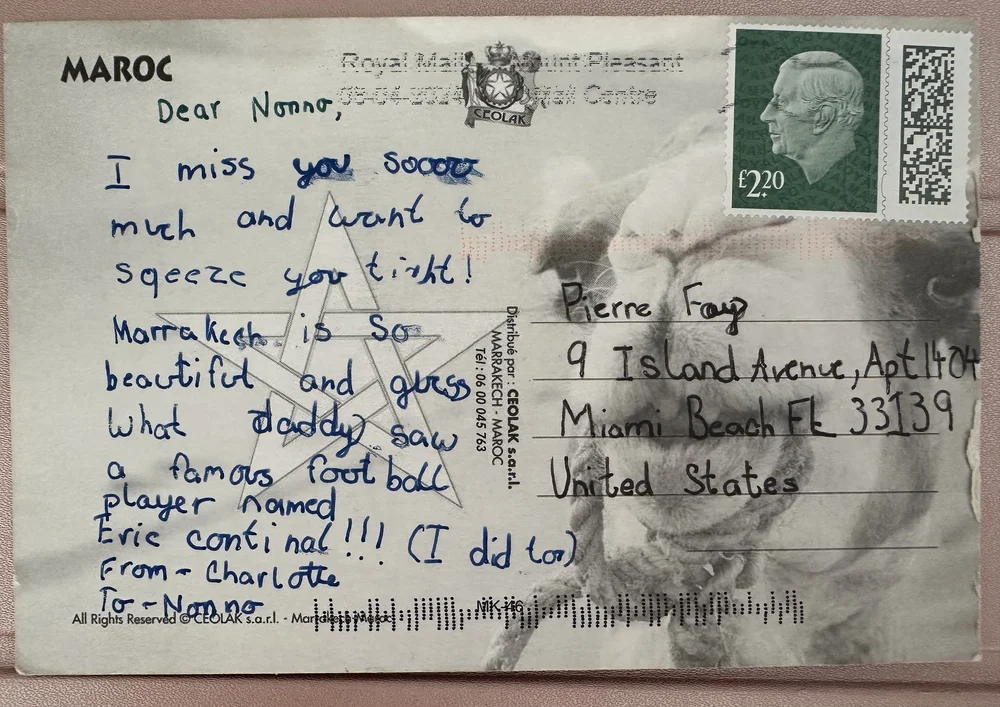 MAROC
Royal Mail Mount Pleasant
08-04-2024 Mail Centre
CEOLAK
£2.20
Dear Nonno,
I miss you sooooo
much and want to
sqeeze you tight!
Marrakech is so
beautiful and guess
what daddy saw
a famous football
player named
Eric continal!!! (I did too)
From - Charlotte
To - Nonno
Distribué par : CEOLAK s.a.r.l.
MARRAKECH - MAROC
Tél : 06 00 045 763
Pierre Fay
9 Island Avenue, Apt 1404
Miami Beach FL 33139
United States
MK-46
All Rights Reserved © CEOLAK s.a.r.l. - Marrakech-Maroc